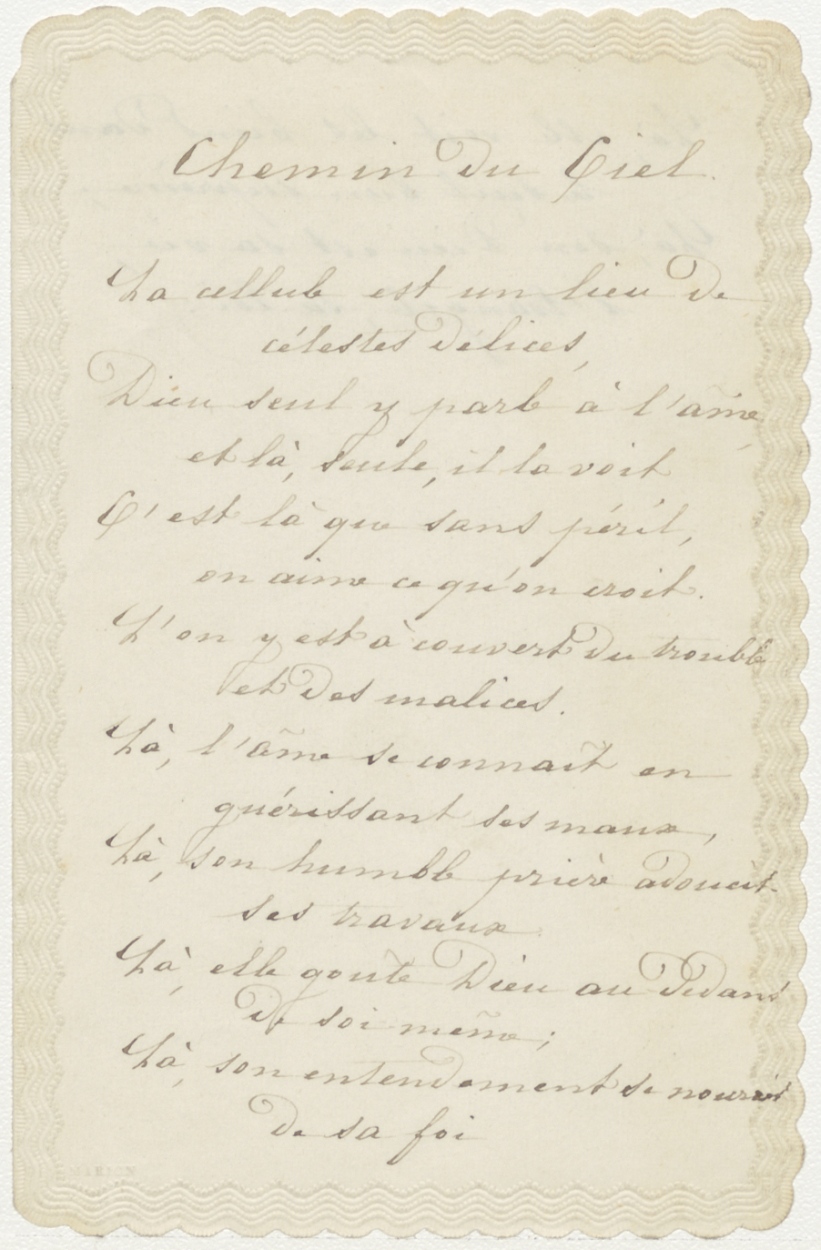 Chemin du Ciel.
La cellule est un lieu de
célestes délices,
Dieu seul y parle à l'âme,
et là, seule, il la voit
C'est là que sans péril,
on aime ce qu'on croit.
L'on y est à couvert du trouble
et des malices.
Là, l'âme se connait en
guérissant ses maux,
Là, son humble prière adoucit
ses travaux
Là, elle goute Dieu au dedans
de soi même;
Là, son entendement se nourrit
de sa foi
MARION